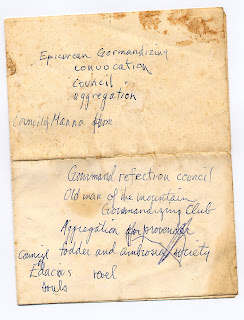 Epicurean Gormandizing
convocation
council
aggregation
Council of Manna form
Gourmand refection council
Old man of the mountain
Gormandizing Club
Aggregation for provender
Council fodder and ambrosia society
Edacious revel
souls